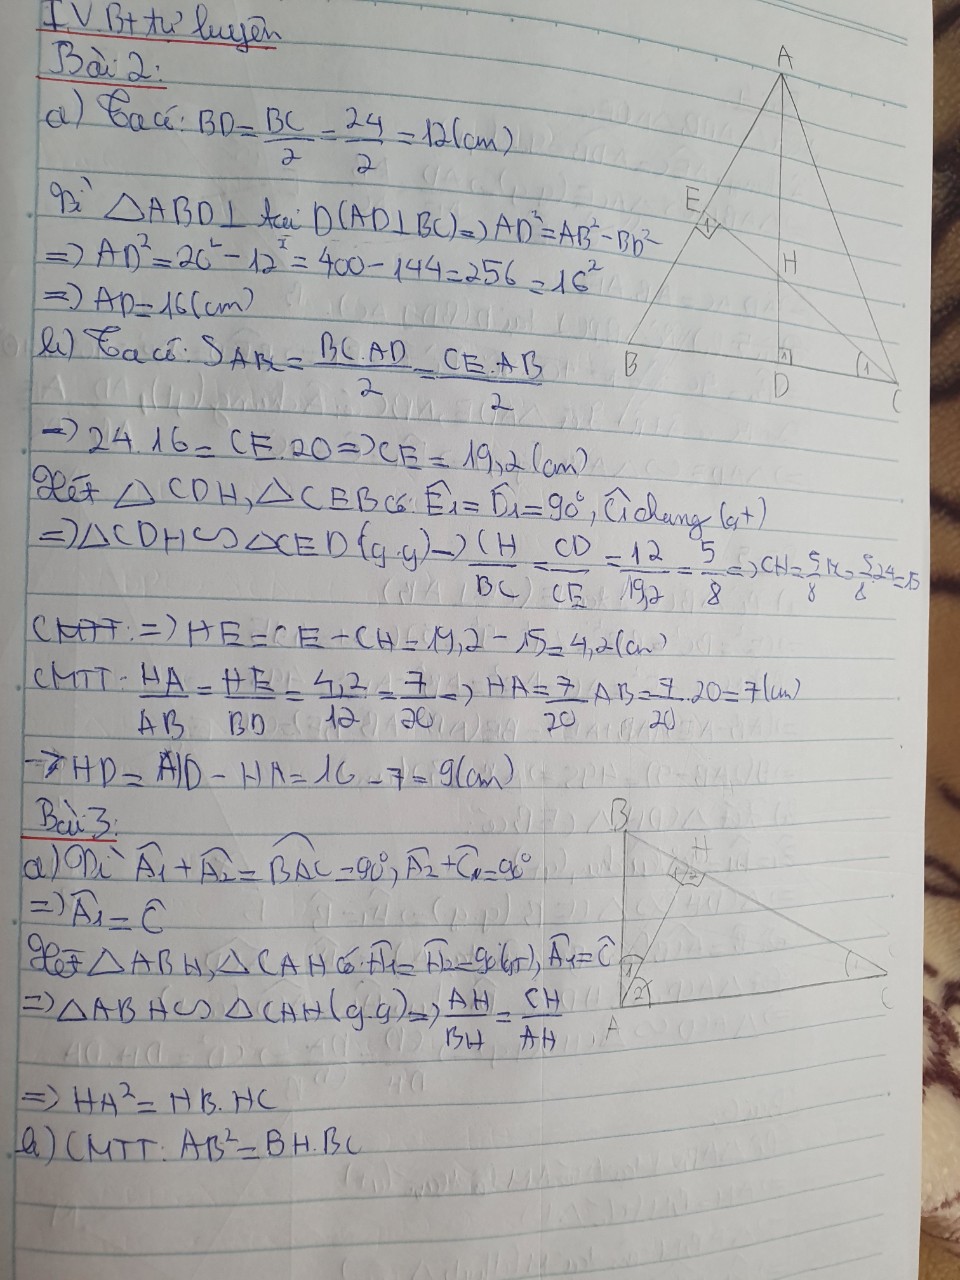 IV. Bt tự luyện
Bài 2:
a) Ta có: BD = BC/2 = 24/2 = 12(cm)
Vì △ABD ⊥ tại D(AD⊥BC) => AD² = AB² - BD²
=> AD² = 20² - 12² = 400 - 144 = 256 = 16²
=> AD = 16(cm)
b) Ta có: S ABC = BC.AD/2 = CE.AB/2
=> 24.16 = CE.20 => CE = 19,2(cm)
Xét △CDH, △CEB có: Ê1 = D̂1 = 90°, Ĉ1 chung (gt)
=> △CDH ∽ △CED (g.g) => CH/BC = CD/CE = 12/19,2 = 5/8 => CH = 5/8 BC = 5/8.24 = 15
CMTT: => HE = CE - CH = 19,2 - 15 = 4,2(cm)
CMTT: HA/AB = HE/BD = 4,2/12 = 7/20 => HA = 7/20 AB = 7/20.20 = 7(cm)
=> HD = AD - HA = 16 - 7 = 9(cm)
Bài 3:
a) Vì Â1 + Â2 = BAC = 90°, Â2 + Ĉ1 = 90°
=> Â1 = Ĉ
Xét △ABH, △CAH có: Ĥ1 = Ĥ2 = 90°(gt), Â1 = Ĉ
=> △ABH ∽ △CAH (g.g) => AH/BH = CH/AH
=> HA² = HB.HC
b) CMTT: AB² = BH.BC
A
E
1
H
B
1
D
1
C
B
H
1 2
1
2
A
1
C